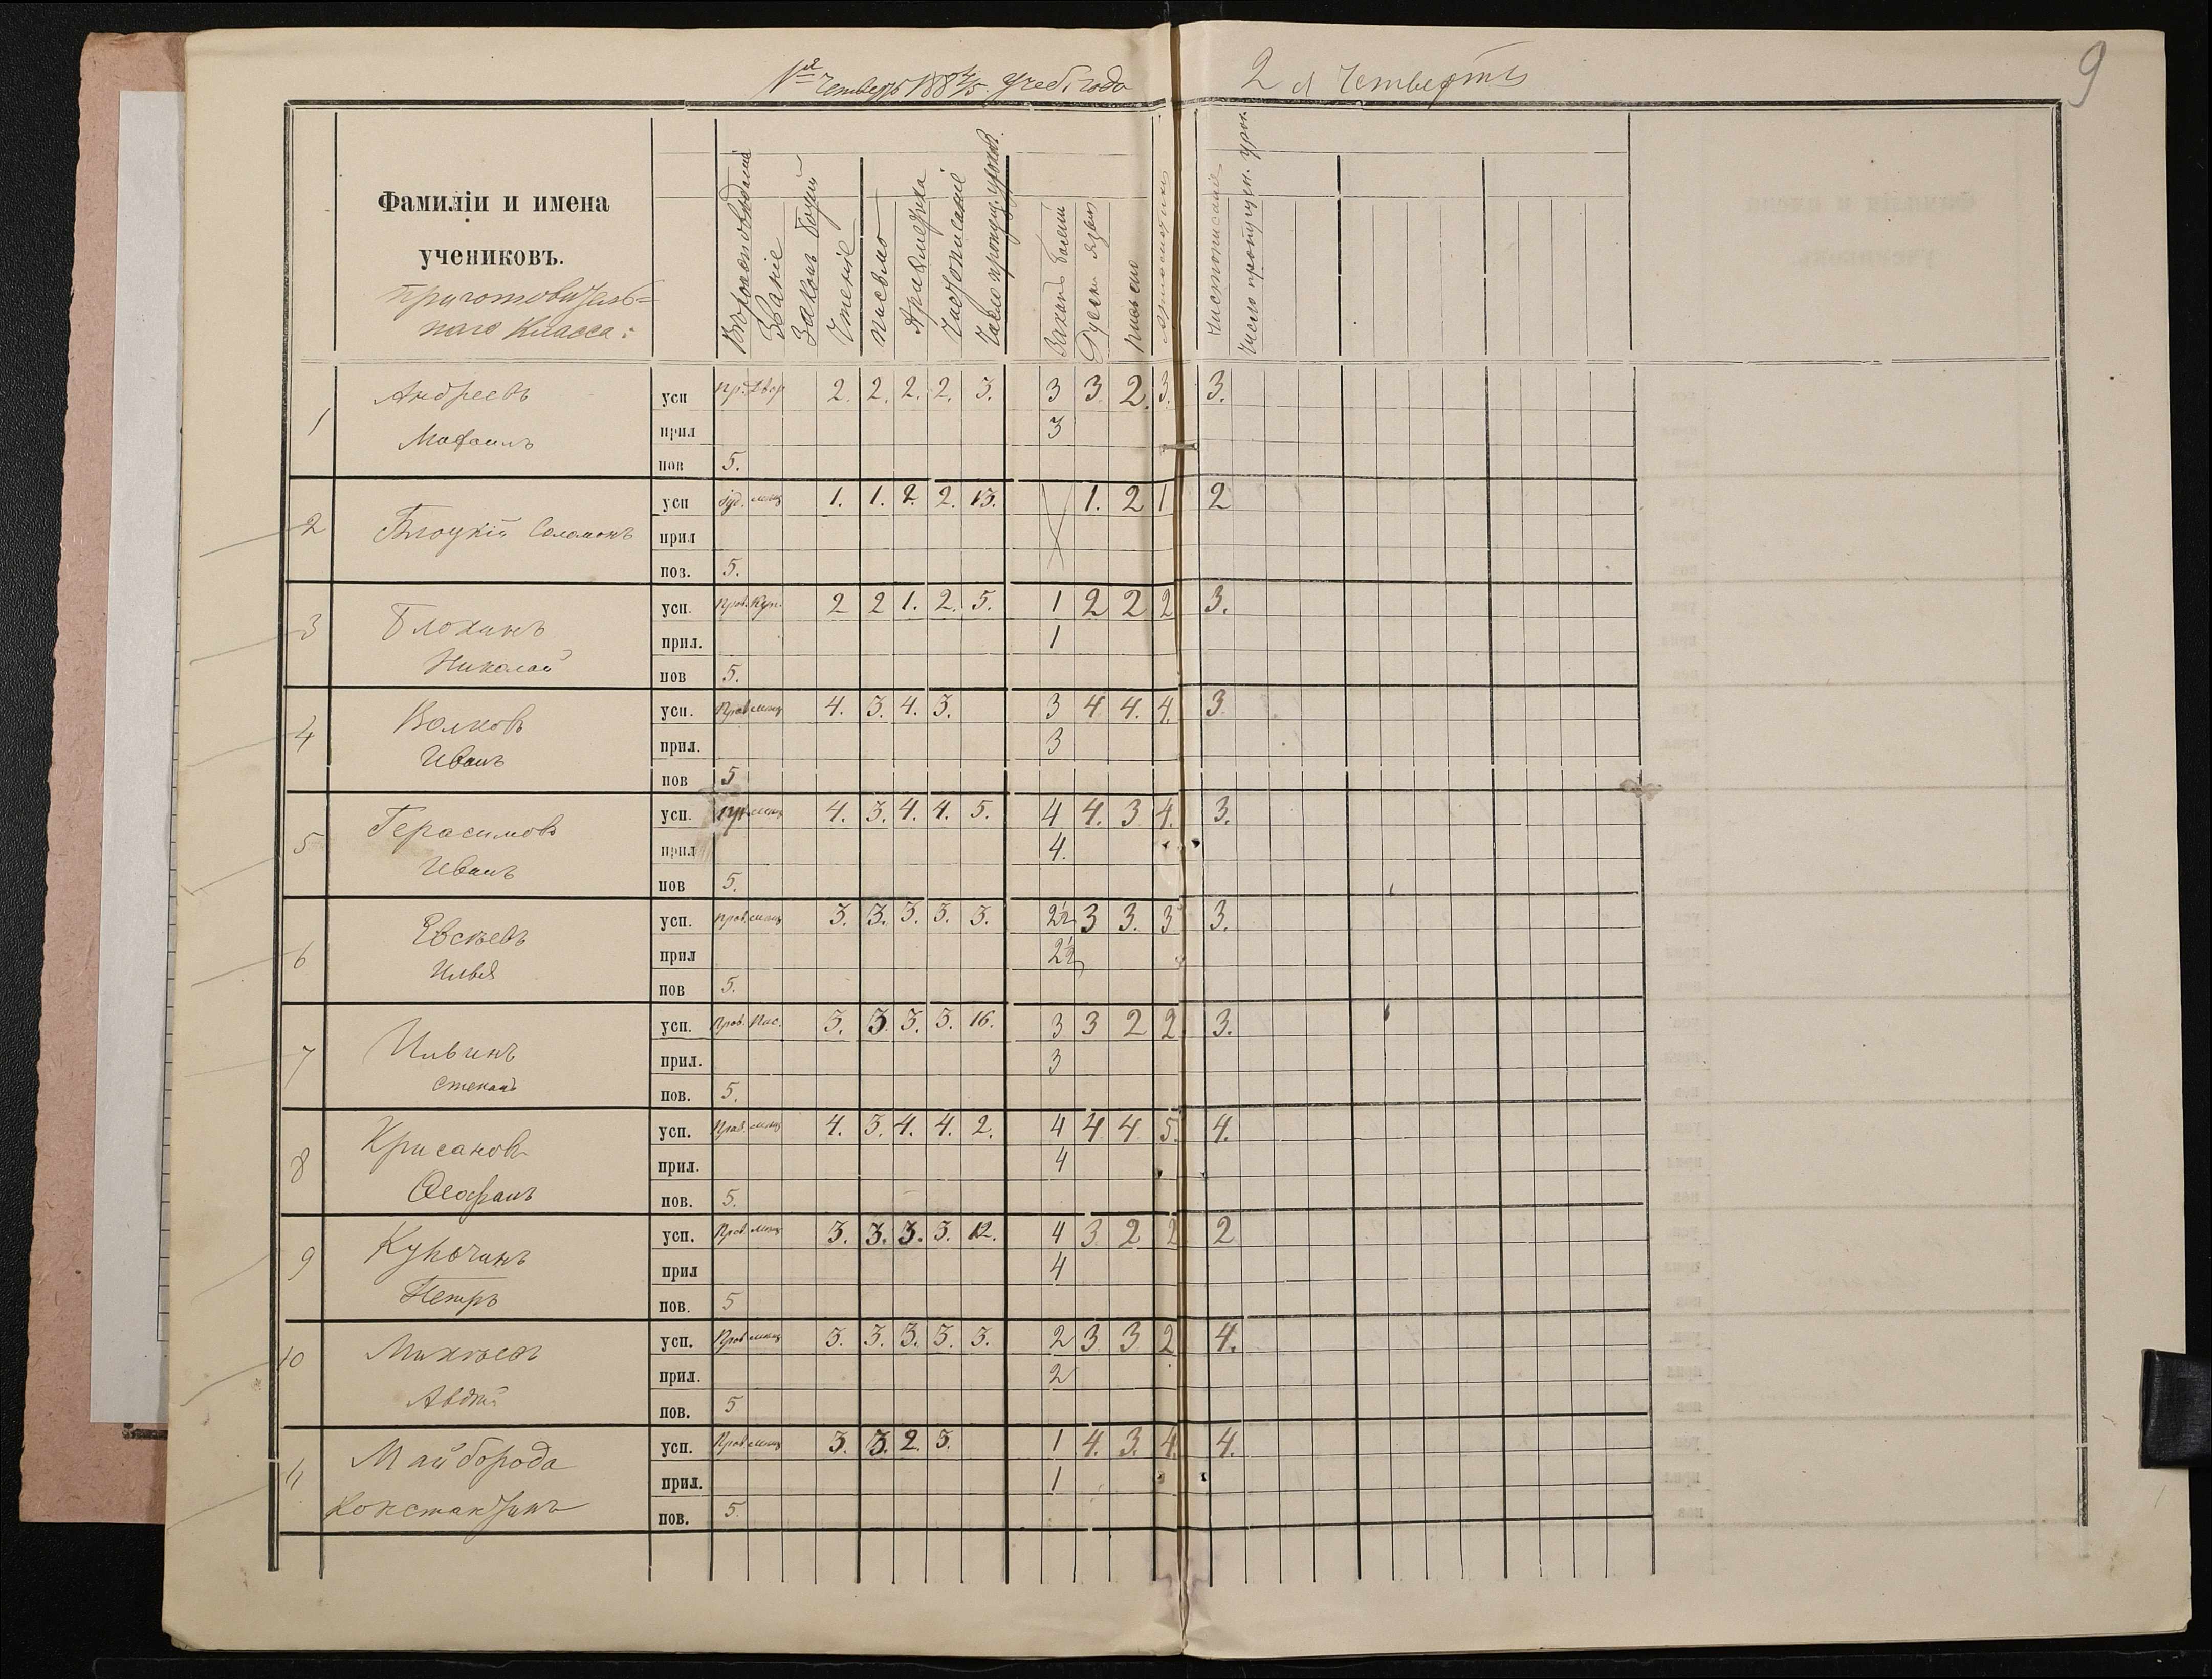 1я четверть 1884/5 учеб. года
2 я четверть
9
Фамиліи и имена
учениковъ.
приготовитель=
наго класса:
Вѣроисповѣданіе
Званіе
Законъ Божій
Чтеніе
Письмо
Арифметика
Чистописаніе
Число пропущ. уроковъ.
Законъ Божій
Русскій языкъ
письмо
Арифметика
Чистописаніе
Число пропущен. урок.
1 Андреевъ усп Пр. Двор 2. 2. 2. 2. 3. 3 3. 2. 3. 3.
прил 3
пов 5.
2 Блоцкій Соломонъ усп Іуд. мѣщ 1. 1. 2. 2. 13. 1. 2 1 2
прил
поз. 5.
3 Блохинъ усп. Прав. Куп. 2 2 1. 2. 5. 1 2 2 2 3.
прил. 1
Николай пов 5.
4 Волковъ усп. Прав мѣщ 4. 3. 4. 3. 3 4 4. 4. 3
Иванъ прил. 3
пов 5
5 Герасимовъ усп. Пр. мѣщ 4. 3. 4. 4. 5. 4 4. 3 4. 3.
прил 4.
Иванъ пов 5.
6 Евсѣевъ усп. Прав. мѣщ 3. 3. 3. 3. 3. 2½ 3 3. 3 3.
Илья прил 2½
пов 5.
7 Ильинъ усп. Прав. 3. 3. 3. 3. 16. 3 3 2 2 3.
прил. 3
Степанъ пов. 5.
8 Крисановъ усп. Прав. мѣщ 4. 3. 4. 4. 2. 4 4 4 5. 4.
прил. 4
пов. 5.
9 Курочинъ усп. Прав. мѣщ 3. 3. 3. 3. 12. 4 3 2 2 2
прил 4
Петръ пов. 5
10 Михѣевъ усп. Прав мѣщ 3. 3. 3. 3. 3. 2 3 3 2 4.
прил. 2
Авдѣй пов. 5
11 Майборода усп. Прав мѣщ 3. 3. 2. 3. 1 4. 3. 4. 4.
прил. 1
Константинъ пов. 5.